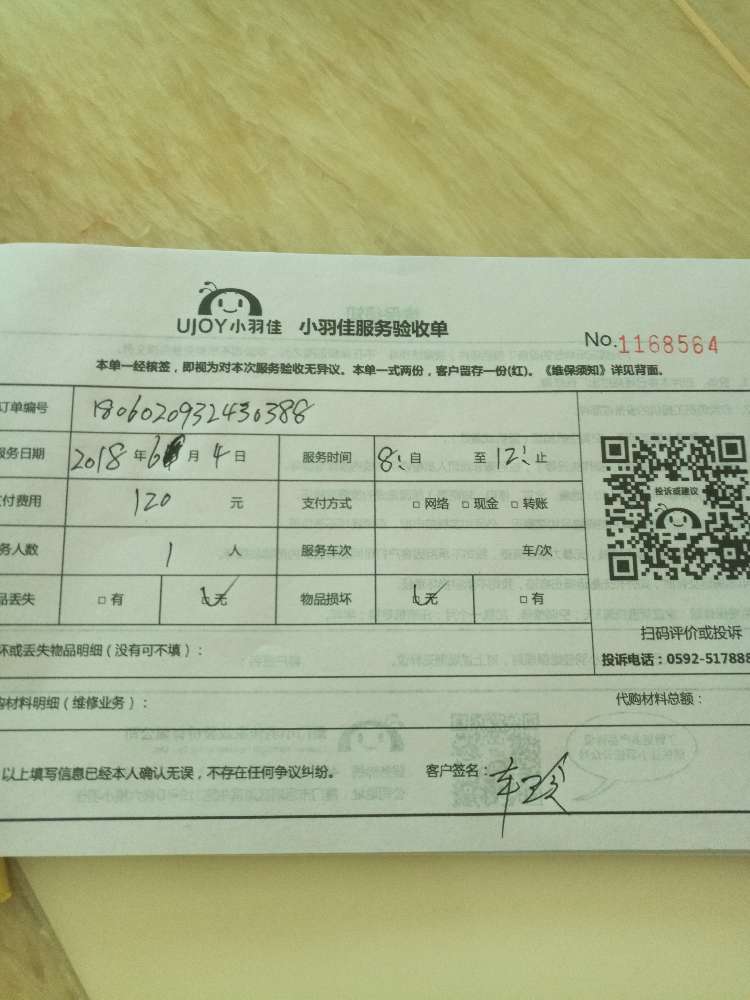 UJOY小羽佳 小羽佳服务验收单
No.1168564
本单一经核签，即视为对本次服务验收无异议。本单一式两份，客户留存一份(红)。《维保须知》详见背面。
订单编号 180602093243038​8
服务日期 2018 年 6 月 4 日 服务时间 8: 自 至 12: 止
付费用 120 元 支付方式 □ 网络 □ 现金 □ 转账
务人数 1 人 服务车次 车/次
品丢失 □ 有 □ 无 物品损坏 □ 无 □ 有
投诉或建议
扫码评价或投诉
投诉电话：0592-517888
坏或丢失物品明细（没有可不填）：
购材料明细（维修业务）： 代购材料总额：
以上填写信息已经本人确认无误，不存在任何争议纠纷。 客户签名：